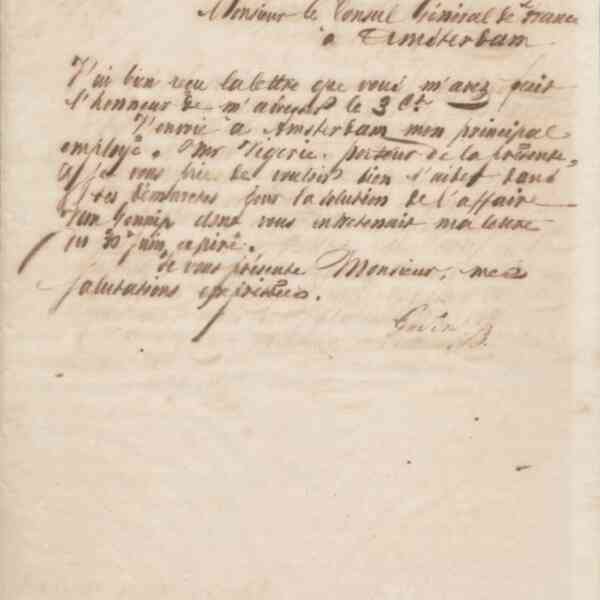 Monsieur le Consul Général de France
à Amsterdam
J'ai bien reçu la lettre que vous m'avez fait
l'honneur de m'adresser le 3 Ct.
J'envoie à Amsterdam mon principal
employé, Mr porteur de la présente,
et je vous prie de vouloir bien l'aider dans
ses démarches pour la solution de l'affaire
dont vous entretenait ma lettre
du 30 Juin
Je vous présente Monsieur, mes
salutations empressées.